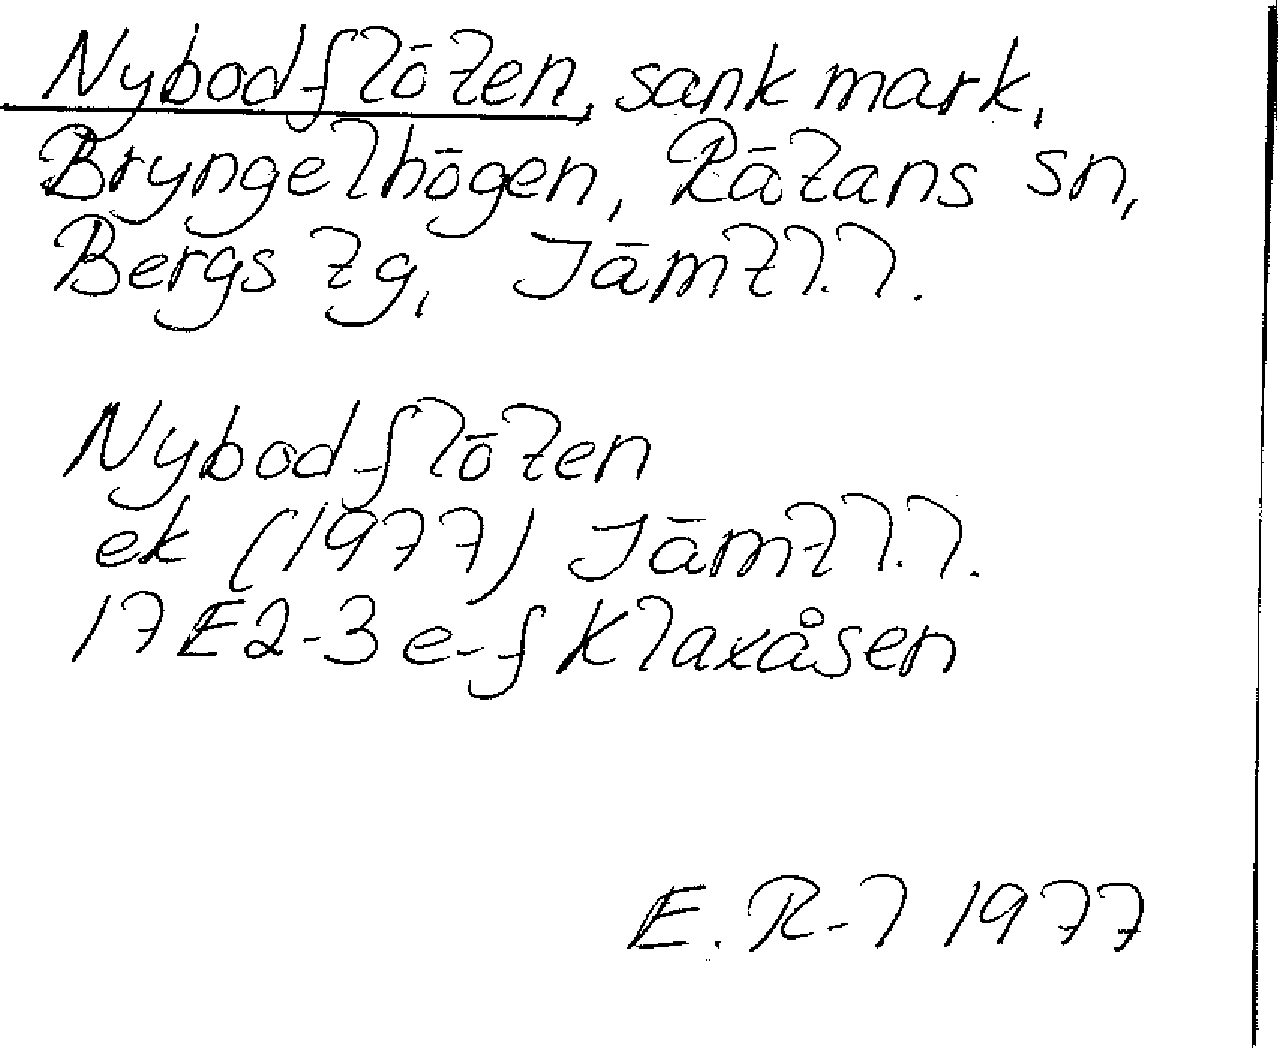 Nybodflöten, sank mark,
Bryngelhögen, Rätans sn,
Bergs tg, Jämtl.l.
Nybodflöten
ek (1977) Jämtl.l.
17E2-3e-f Klaxåsen
E.R-l 1977